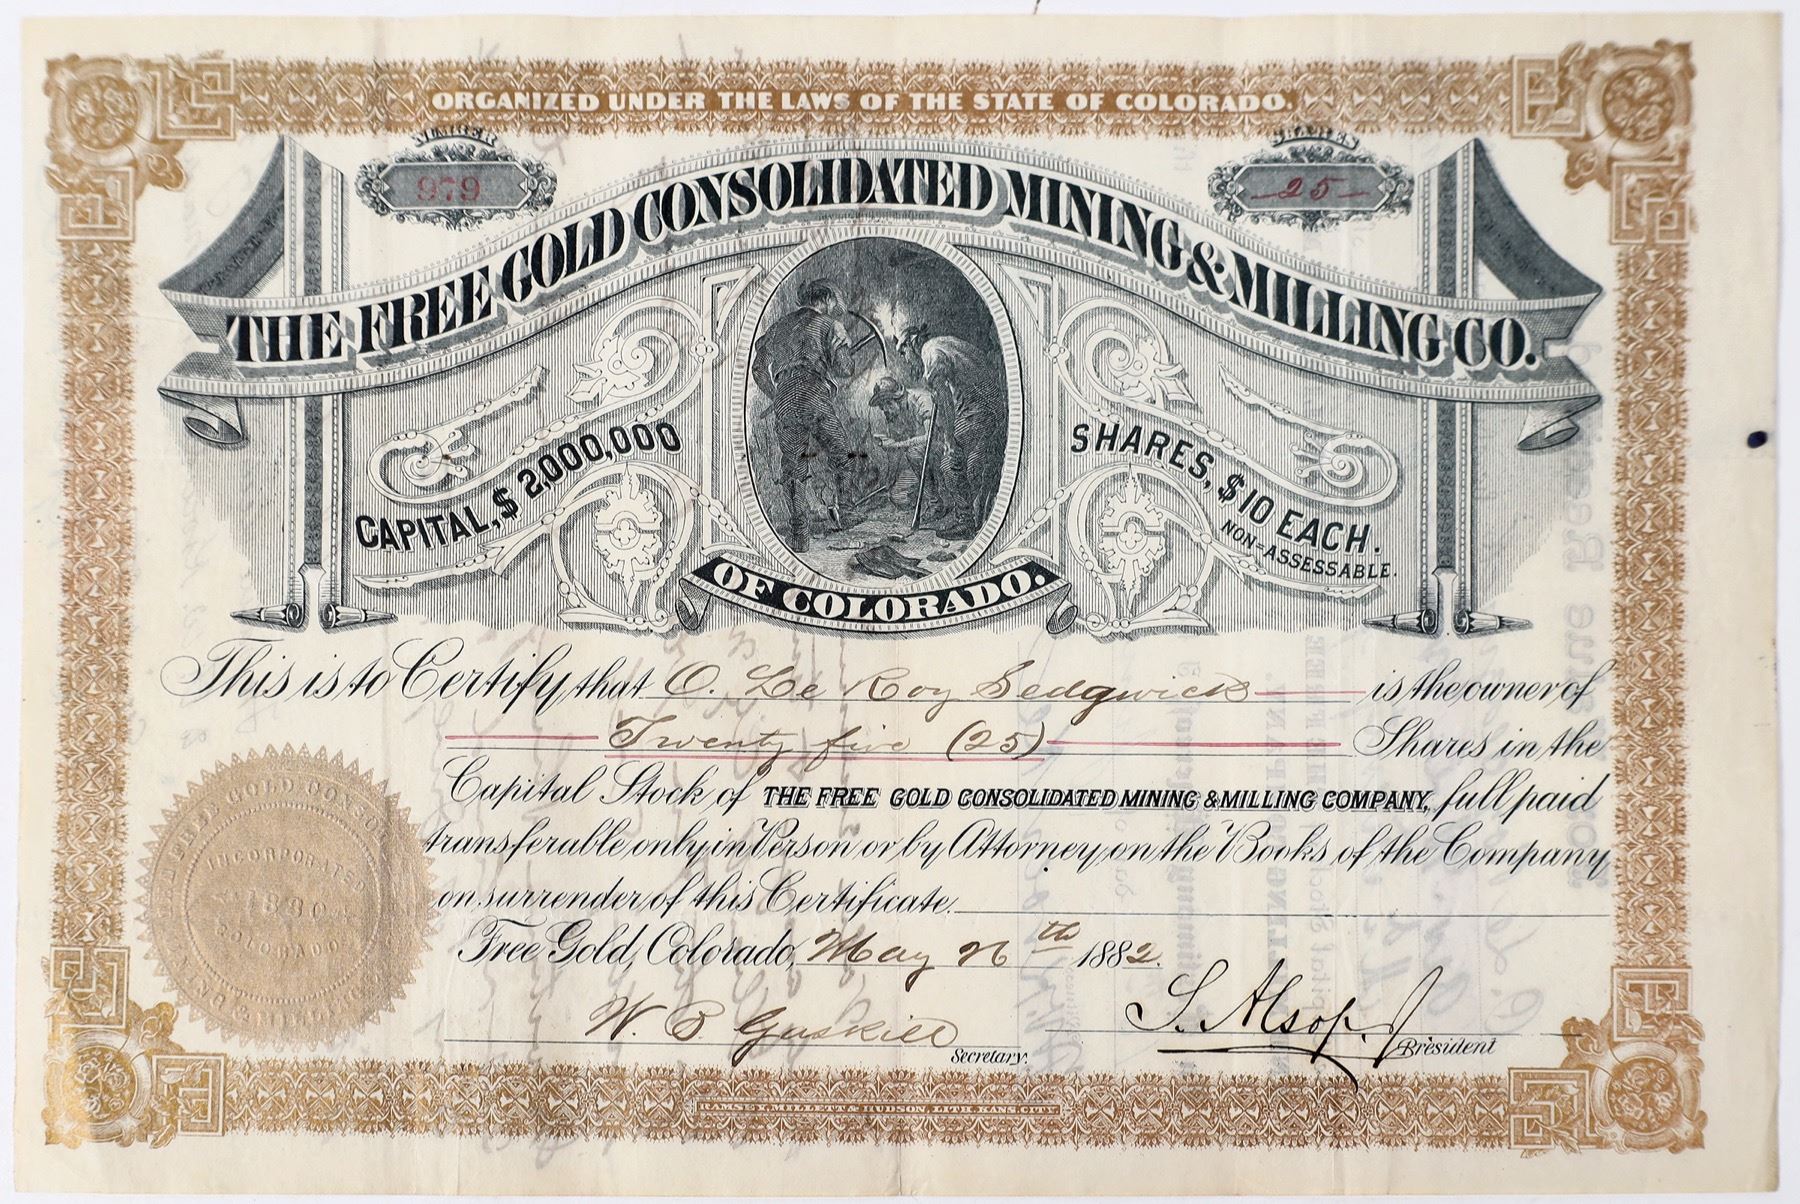 ORGANIZED UNDER THE LAWS OF THE STATE OF COLORADO.
NUMBER
979
SHARES
25
THE FREE GOLD CONSOLIDATED MINING & MILLING CO.
CAPITAL, $ 2,000,000
SHARES, $10 EACH.
NON-ASSESSABLE.
OF COLORADO.
This is to Certify that O. Le Roy Sedgwick is the owner of
Twenty five (25) Shares in the
Capital Stock of THE FREE GOLD CONSOLIDATED MINING & MILLING COMPANY, full paid
transferable only in Person or by Attorney on the Books of the Company
on surrender of this Certificate.
Free Gold, Colorado, May 26th 1882.
W. B. Gaskill
Secretary.
S. Alsop. Jr
President
FREE GOLD CONSOL
INCORPORATED
1880
COLORADO
MINING & MILLING
RAMSEY, MILLETT & HUDSON, LITH. KANS. CITY.